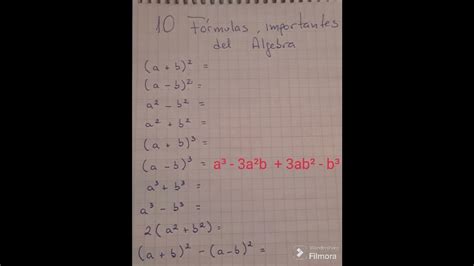 10 Fórmulas importantes
del Algebra
(a + b)² =
(a - b)² =
a² - b² =
a² + b² =
(a + b)³ =
(a - b)³ = a³ - 3a²b + 3ab² - b³
a³ + b³ =
a³ - b³ =
2(a² + b²) =
(a + b)² - (a - b)² =
Wondershare
Filmora